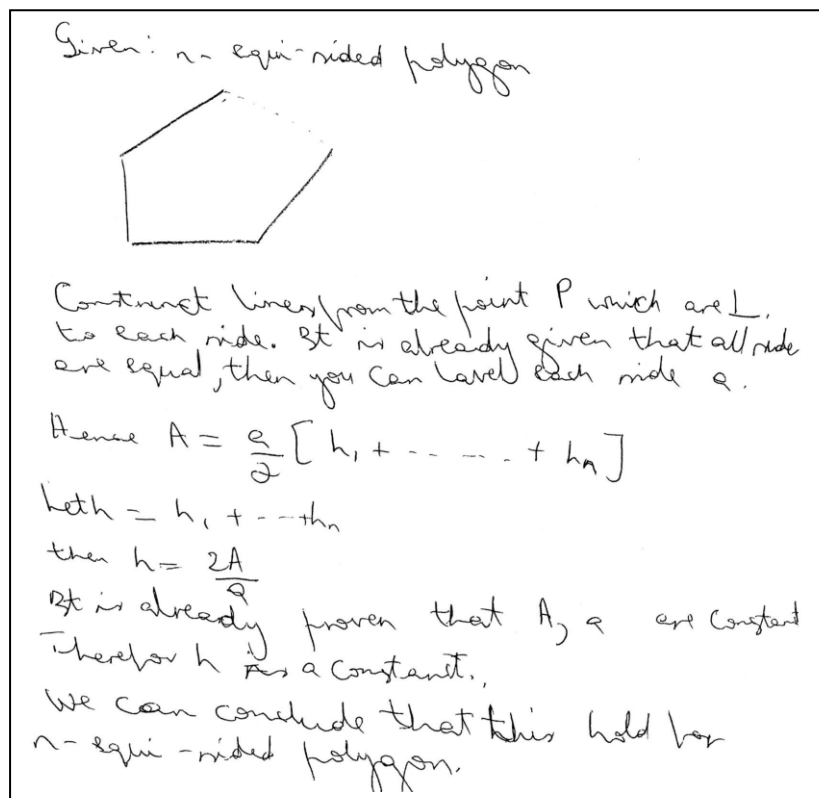 Given: n- equi-sided polygon
Construct lines from the point P which are ⊥.
to each side. It is already given that all side
are equal, then you can lavel each side a.
Hence A = a/2 [ h₁ + ....... + hₙ ]
Let h = h₁ + ---+hₙ
then h = 2A/a
It is already proven that A, a are constant
Therefor h is a constant.,
We can conclude that this hold for
n- equi-sided polygon.